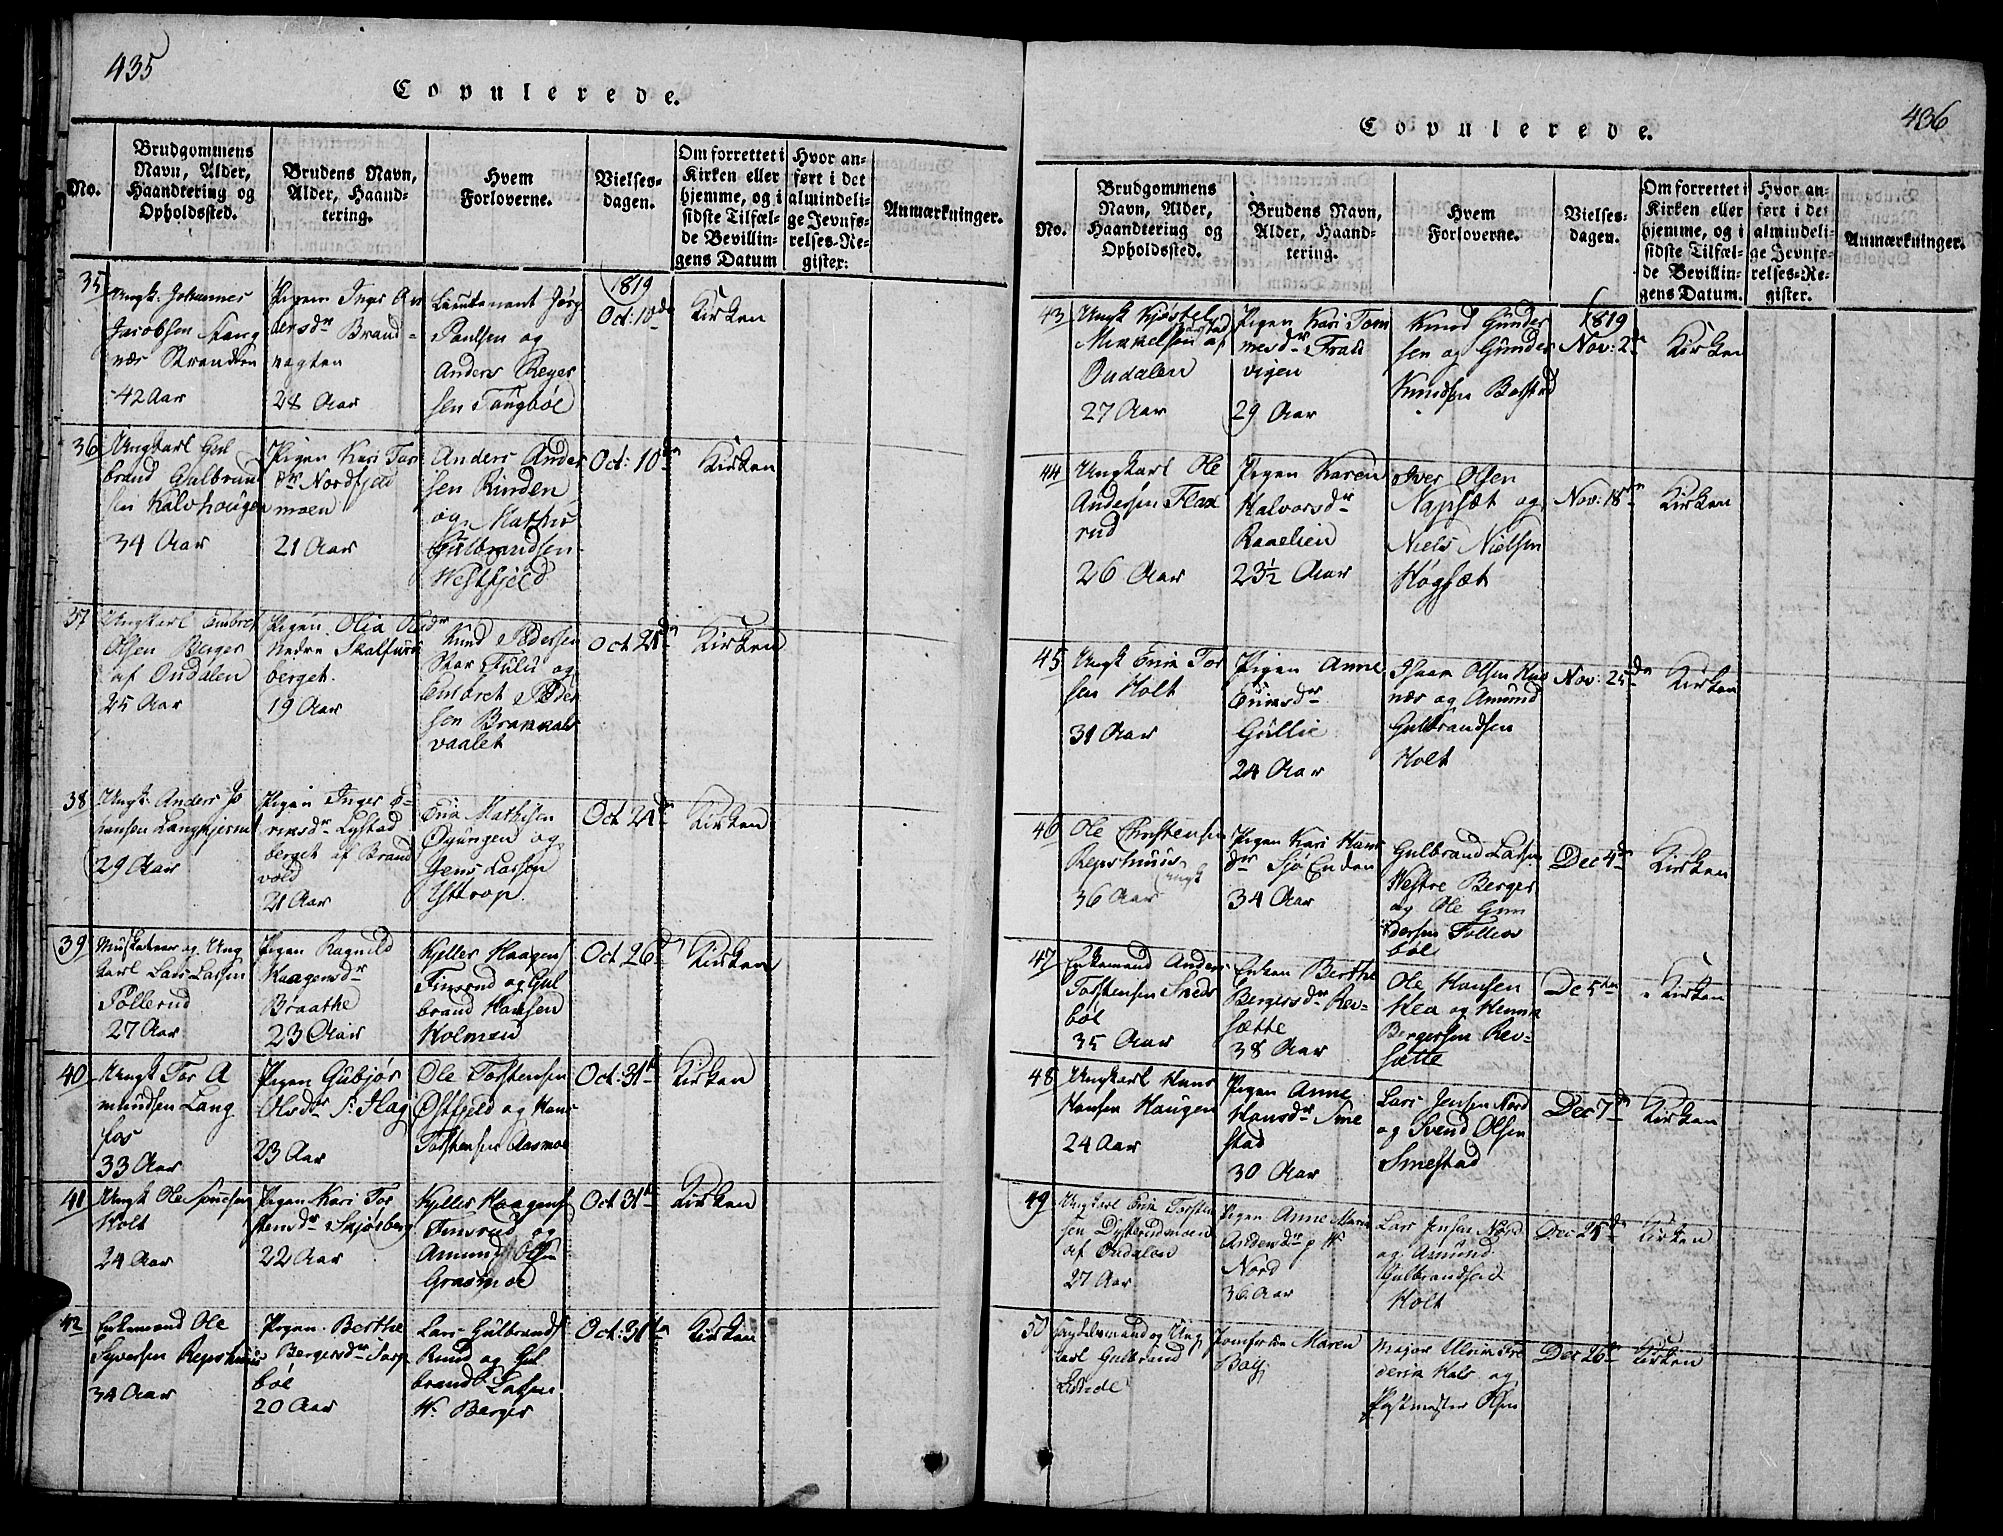 435
Copulerede.
No.
Brudgommens
Navn, Alder,
Haandtering og
Opholdssted.
Brudens Navn,
Alder, Haand-
tering.
Hvem
Forloverne.
Vielses-
dagen.
Om forrettet i
Kirken eller
hjemme, og i
sidste Tilfæl-
de Bevillin-
gens Datum
Hvor an-
ført i det
almindeli-
ge Jevnfø-
relses-Re-
gister.
Anmærkninger.
35
Ungk: Johannes
Jacobsen
nær Stranden
42 Aar
Pigen Inger An
dersdr Brand-
vagten
28 Aar
Lieutenant Jørg
Paulsen og
Anders Reyer
sen Tangbøl
1819
Oct: 10de
Kirken
36
Ungkarl Gul
brand Gulbrand
sen Kalvhougen
34 Aar
Pigen Kari Tor
dr Nordfjeld
moen
21 Aar
Anders Ander
sen Rinden
og Mathis
Gulbrandsen
Westfjeld
Oct: 10de
Kirken
37
Ungkarl Embret
Olsen Berger
af Oudalen
25 Aar
Pigen Olia
Nedre
berget.
19 Aar
Knud Pedersen
Stor og
Embret Peder
sen
vaalet
Oct 21de
Kirken
38
Ungk: Anders Jo
hansen
29 Aar
Pigen Inger E-
ricsdr Lystad
berget af Brand
vold
21 Aar
Eric Mathisen
Øyungen og
Jens Larsen
Oct 24de
Kirken
39
Musketeer og Ung
karl Lars Larsen
Pollerud
27 Aar
Pigen Ragnild
Haagensdr
Braathe
23 Aar
Kjeller Haagens
Finsrud og Gul
brand Hansen
Holmen
Oct 26de
Kirken
40
Ungk Tor A
mundsen Lang
fos
33 Aar
Pigen Gubjør
Olsdr S: Hag
23 Aar
Ole Torstensen
Østfjeld og Hans
Torstensen Aasmoe
Oct: 31te
Kirken
41
Ungk Ole
Holt
24 Aar
Pigen Kari Tor
stensdr Skjøsberg
22 Aar
Kjeller Haagens
Finsrud og
Amund
Grasmoe
Oct 31te
Kirken
42
Enkemand Ole
Syversen Repshuus
34 Aar
Pigen Berthe
Bergersdr Torp
bøl
20 Aar
Lars Gulbrands
Rund og Gul
brand Larsen
W: Berger
Oct: 31te
Kirken
436
Copulerede.
No.
Brudgommens
Navn, Alder,
Haandtering og
Opholdssted.
Brudens Navn,
Alder, Haand-
tering.
Hvem
Forloverne.
Vielses-
dagen.
Om forrettet i
Kirken eller
hjemme, og i
sidste Tilfæl-
de Bevillin-
gens Datum.
Hvor an-
ført i det
almindeli-
ge Jevnfø-
relses-Re-
gister.
Anmærkninger.
43
Ungk Kjøstel
Mikkelsen af
Oudalen
27 Aar
Pigen Kari Tom
mesdr Trald
vigen
29 Aar
Knud Gunder
sen og Gunder
Knudsen Bolstad
1819
Nov: 2de
Kirken
44
Ungkarl Ole
Andersen Flaa
rud
26 Aar
Pigen Karen
Halvorsdr
Raaelien
23½ Aar
Iver Olsen
Napsæt og
Niels Nielsen
Høgsæt
Nov: 18de
Kirken
45
Ungk Eric Tor
sen Holt
31 Aar
Pigen Anne
Ericsdr
Gullie
24 Aar
Isaac Olsen
nær og Amund
Gulbrandsen
Holt
Nov: 25de
Kirken
46
Ole Christensen
Repshuus
Ungk
36 Aar
Pigen Kari Hans
dr SjøEnden
34 Aar
Gulbrand Larsen
Westre Berger
og Ole Gun
dersen Tollers
bøl
Dec 4de
Kirken
47
Enkemand Anders
Torstensen Sneds
bøl
35 Aar
Enken Berthe
Bergersdr Rev-
sætte
38 Aar
Ole Hansen
Hea og Henric
Bergersen Rev-
sætte
De 5te
Kirken
48
Ungkarl Hans
Hansen Haugen
24 Aar
Pigen Anne
Hansdr Sme
stad
30 Aar
Lars Jensen Nord
og Svend Olsen
Smestad
Dec 7de
Kirken
49
Ungkarl Eric Torsten
sen Dysterudmoen
af Oudalen
27 Aar
Pigen Anne Marie
Andersdr p W
Nord
36 Aar
Lars Jensen Nord
og Amund
Gulbrandsen
Holt
Dec 25de
Kirken
50
Handelsmand og Ung
karl Gulbrand
Jomfrue Maren
Major Ulrich Fre
derich Hals og
Postmester Olsen
Dec 26de
Kirken